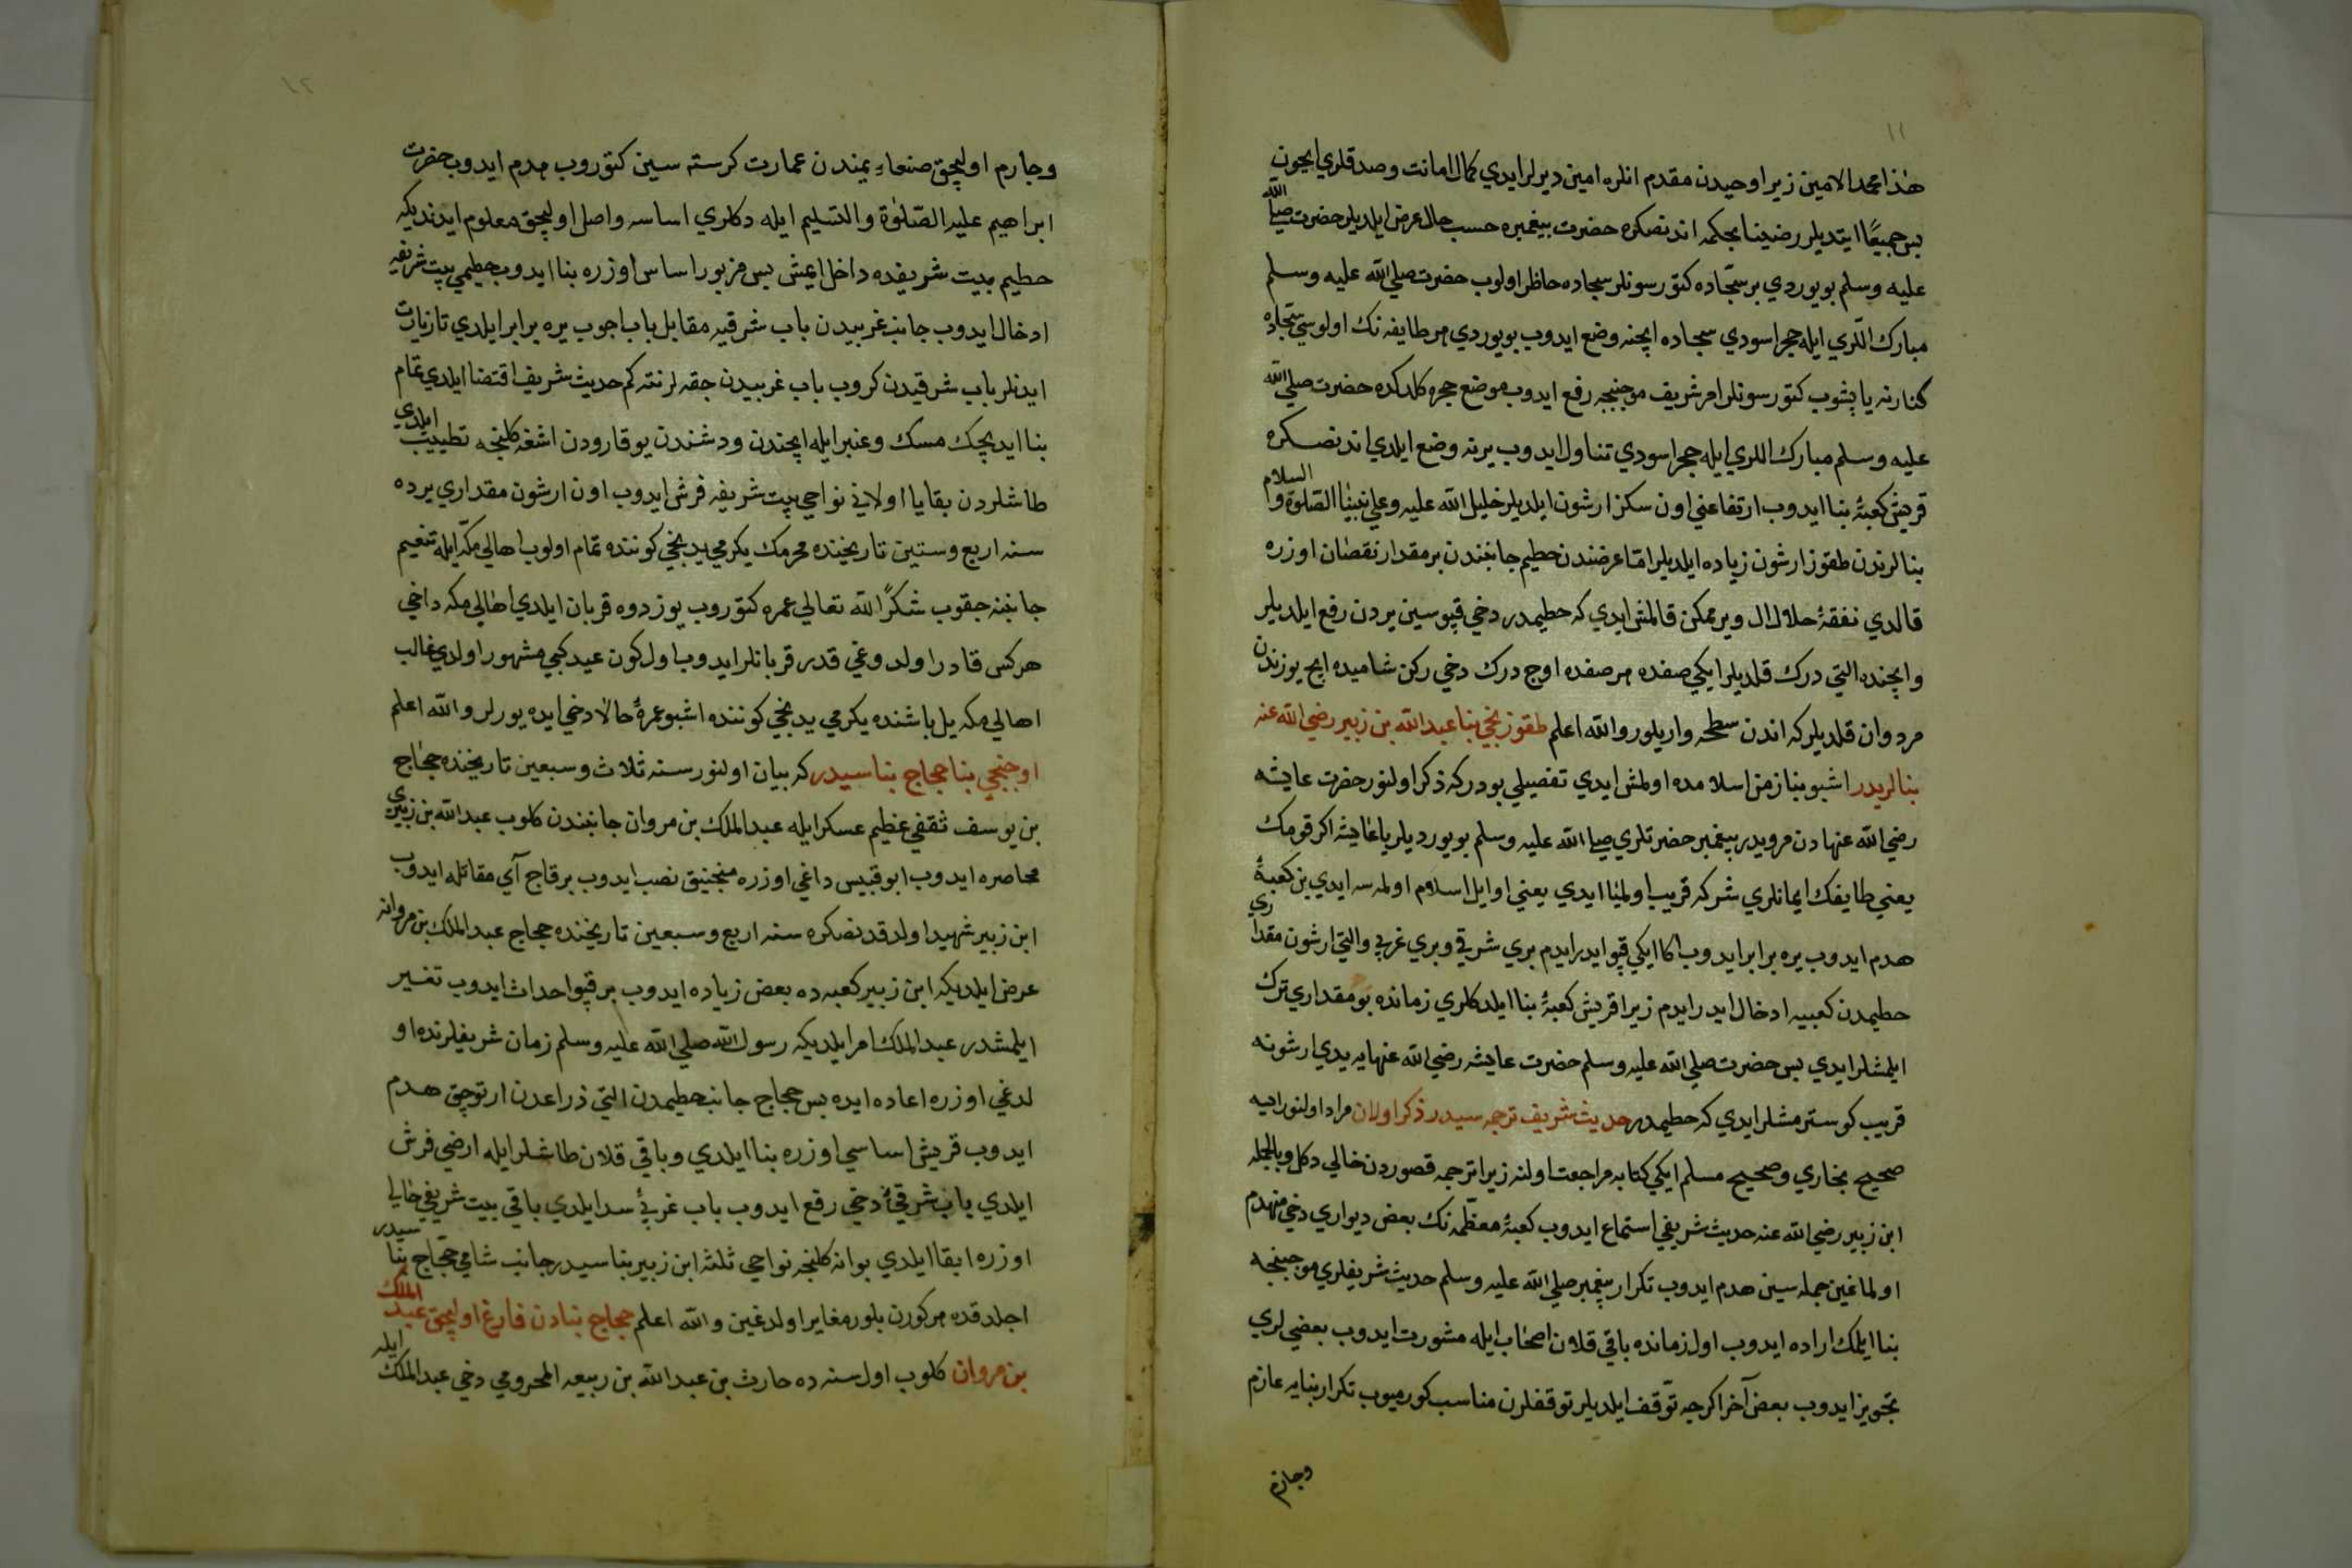 ١١
هذا محمد الامين زيرا وحيدن مقدم انلره امين ديرلر ايدي كمال امانت وصدقلري ايچون
پس جميعًا ايتديلر رضينا بحكمه اندنصكره حضرت پيغمبره حسب حال عرض ايلديلر حضرت صلي الله
عليه وسلم بويوردي بر سجّاده كتورسونلر سجاده حاظر اولوب حضرت صلي الله عليه وسلم
مبارك اللري ايله حجر اسودي سجاده ايچنه وضع ايدوب بويوردي هر طايفه نك اولوسي سجاده
كنارنه ياپشوب كتورسونلر امر شريف موجبنجه رفع ايدوب موضع حجره كلدكده حضرت صلي الله
عليه وسلم مبارك اللري ايله حجر اسودي تناول ايدوب يرنه وضع ايلدي اندنصكره
قريش كعبۀ بنا ايدوب ارتفاعني اون سكز ارشون ايلديلر خليل الله عليه وعلي نبينا الصلوة والسلام
بنالرندن طقوز ارشون زياده ايلديلر امّا عرضندن حطيم جانبندن بر مقدار نقصان اوزره
قالدي نفقۀ حلال ال ويرممكن قالمش ايدي كه حطيمدر دخي قپوسين يردن رفع ايلديلر
وايچنده التي درك قلديلر ايكي صفده هر صفده اوچ درك دخي ركن شاميده ايچ يوزندن
مردوان قلديلر كه اندن سطحه واريلور والله اعلم طقوزنجي بنا عبد الله بن زبير رضي الله عنه
بنالريدر اشبو بنا زمن اسلامده اولمش ايدي تفصيلي بودركه ذكر اولنور حضرت عايشه
رضي الله عنهادن مرويدر پيغمبر حضرتلري صلي الله عليه وسلم بويورديلر يا عايشه اكر قومك
يعني طايفك ايمانلري شركه قريب اولميا ايدي يعني اوايل اسلام اولمسه ايدي بن كعبۀ
هدم ايدوب يره برابر ايدوب اكا ايكي قپو ايدر ايدم بري شرقي وبري غربي والتي ارشون مقداري
حطيمدن كعبيه ادخال ايدر ايدم زيرا قريش كعبۀ بنا ايلدكلري زمانده بو مقداري ترك
ايلمشلر ايدي پس حضرت صلي الله عليه وسلم حضرت عايشه رضي الله عنهايه يدي ارشونه
قريب كوسترمشلر ايدي كه حطيمدر حديث شريف ترجمه سيدر ذكر اولان مراد اولنور ايه
صحيح بخاري وصحيح مسلم ايكي كتابه مراجعت اولنه زيرا ترجمه قصوردن خالي دكل وبالجمله
ابن زبير رضي الله عنه حديث شريفي استماع ايدوب كعبۀ معظّمه نك بعض ديواري دخي منهدم
اولماغين جمله سين هدم ايدوب تكرار پيغمبر صلي الله عليه وسلم حديث شريفلري موجبنجه
بنا ايلمك اراده ايدوب اول زمانده باقي قلان اصحاب ايله مشورت ايدوب بعضي لري
تجويز ايدوب بعض آخر اكرچه توقف ايلديلر توقفلرن مناسب كورميوب تكرار بنايه عازم
وجازم
١٢
وجازم اوليجق صنعاءِ يمندن عمارت كرسته سين كتوروب هدم ايدوب حضرت
ابراهيم عليه الصّلوة والتسليم ايله دكلري اساسه واصل اوليجق معلوم ايدنديكه
حطيم بيت شريفده داخل ايمش پس مزبور اساس اوزره بنا ايدوب حطيمي بيت شريفه
ادخال ايدوب جانب غربيدن باب شرقيه مقابل باب اچوب يره برابر ايلدي تا زيارت
ايدنلر باب شرقيدن كروب باب غربيدن چقه لر نته كم حديث شريف اقتضا ايلدي تمام
بنا ايديجك مسك وعنبر ايله ايچندن ودشندن يوقارودن اشغه كلنجه تطييب ايلدي
طاشلردن بقايا اولاني نواحي بيت شريفه فرش ايدوب اون ارشون مقداري يرده
سنه اربع وستين تاريخنده محرمك يكرمي يدنجي كوننده تمام اولوب اهالي مكّه ايله تنعيم
جانبنه چقوب شكرًا لله تعالي عمره كتوروب يوز دوه قربان ايلدي اهالي مكه داخي
هركس قادر اولدوغي قدر قربانلر ايدوب اول كون عيد كبي مشهور اولدي غالب
اهالي مكه يل باشنده يكرمي يدنجي كوننده اشبو عمرۀ حالا دخي ايده يورلر والله اعلم
اوننجي بنا حجاج بناسيدر كه بيان اولنور سنه ثلاث وسبعين تاريخنده حجاج
بن يوسف ثقفي عظيم عسكر ايله عبد الملك بن مروان جانبندن كلوب عبد الله بن زبيري
محاصره ايدوب ابو قبيس داغي اوزره منجنيق نصب ايدوب برقاج آي مقاتله ايدوب
ابن زبير شهيد اولدقدنصكره سنه اربع وسبعين تاريخنده حجاج عبد الملك بن مروانه
عرض ايلديكه ابن زبير كعبه ده بعض زياده ايدوب بر قپو احداث ايدوب تغيير
ايلمشدر عبد الملك امر ايلديكه رسول الله صلي الله عليه وسلم زمان شريفلرنده او
لدغي اوزره اعاده ايده پس حجاج جانب حطيمدن التي ذراعدن ارتوجق هدم
ايدوب قريش اساسي اوزره بنا ايلدي وباقي قلان طاشلر ايله ارضي فرش
ايلدي باب شرقيۀ دخي رفع ايدوب باب غربيۀ سد ايلدي باقي بيت شريفي حالي
اوزره ابقا ايلدي بوانه كلنجه نواحي ثلثه ابن زبير بناسيدر جانب شامي حجّاج بناسيدر
اجلدقده هر كورن بلور مغاير اولدغين والله اعلم حجاج بنادن فارغ اوليجق عبد الملك
بن مروان كلوب اول سنه ده حارث بن عبد الله بن ربيعه المحزومي دخي عبد الملك ايله